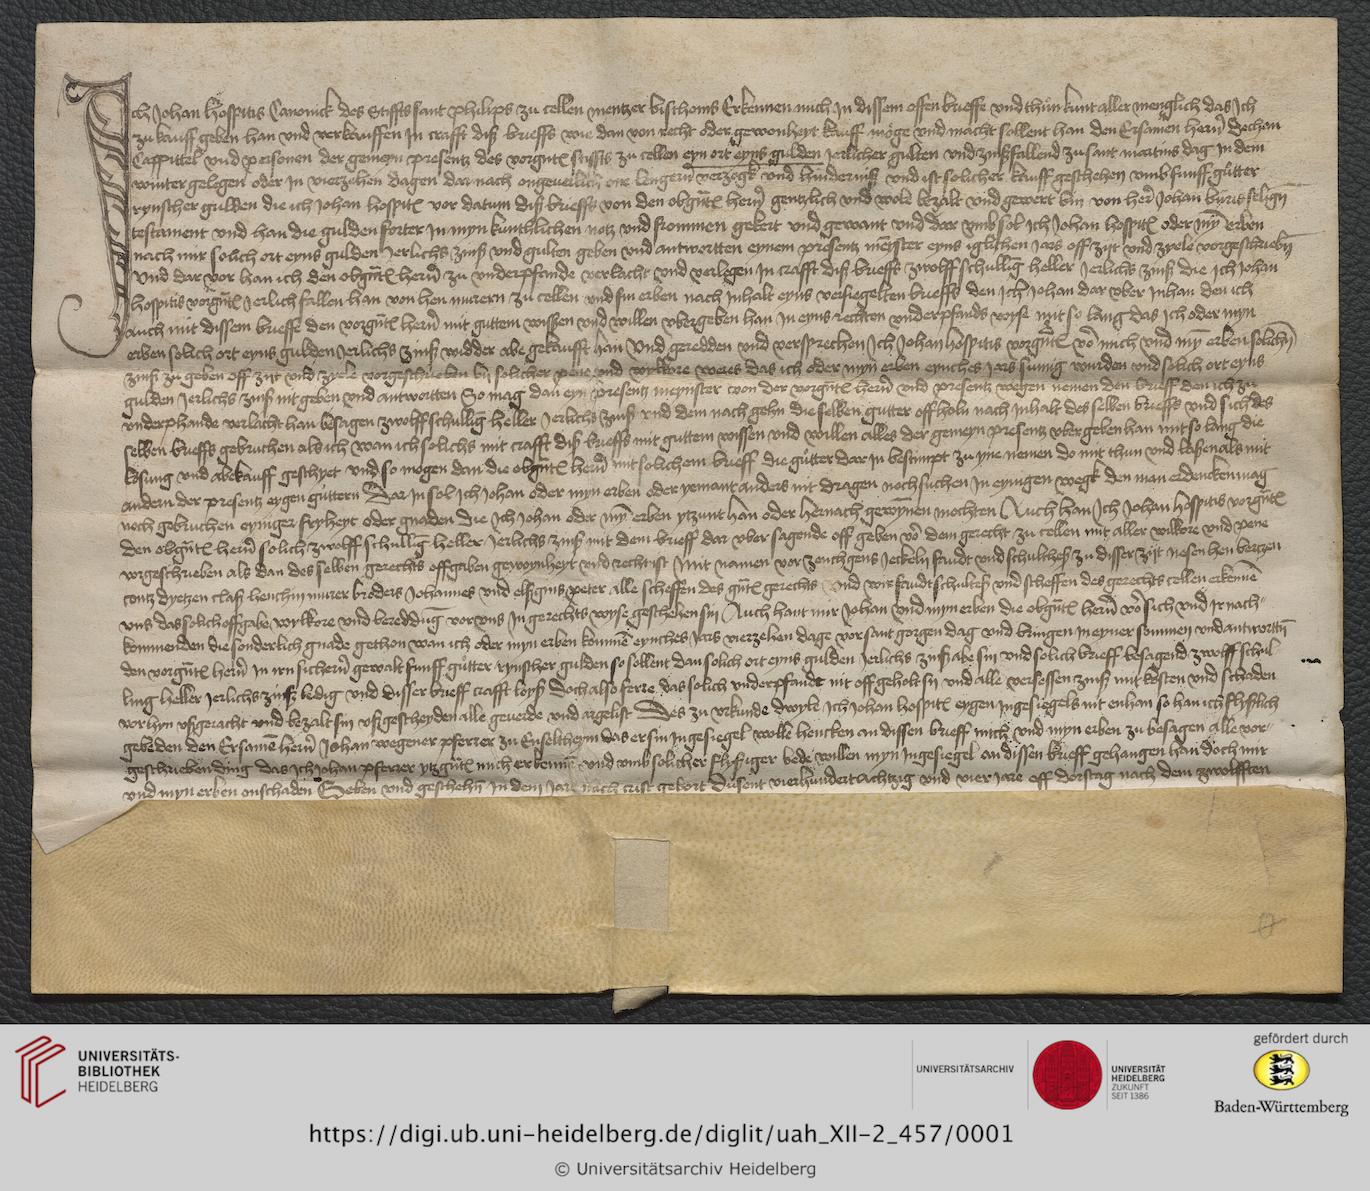 Ich Johan Hospitis Canonick des Stiffts sant philips zu cellen mentzer bisthoms Erkennen mich In dissem offen brieffe vnd thun kunt aller menglich das Ich
zu kauff geben han vnd verkauffen In crafft diß brieffs wie dan von recht oder gewonheyt kauff moge vnd macht sollent han den Ersamen hern dechan
Cappittel vnd personen der gemeyn presentz des vorgnten stiffts zu cellen eyn ort eyns gulden Jerlicher gulten vnd zinß fallend zu sant martins dag in dem
winter gelegen oder in vierzehen dagen dar nach ongeuerlich one lengern verzogk vnd hinderniß vnd ist solicher kauff geschehen vmb funff gutter
rynscher gulden die ich Johan hospitis vor datum diß brieffs von den obgnten hern gentzlich vnd wole bezalt vnd gewert bin von her Johan seligen
testament vnd han die gulden forter In myn kuntlichen notz vnd frommen gekert vnd gewant vnd dar vmb sol Ich Johan hospitis oder myn erben
nach mir solich ort eyns gulden Jerlichs zinß vnd gulten geben vnd antwortten eynem presentz meyster eyns iglichen Jars off zijt vnd zyele vorgeschriben
Vnd dar vor han ich den obgnten hern zu vnderpfande verlacht vnd verlegen In crafft diß brieffs zwolff schilling heller Jerlichs zinß die Ich Johan
hospitis vorgnten Jerlich fallen han von hen murern zu cellen vnd sin erben nach Inhalt eyns versiegelten brieffs den Ich Johan dar vber Inhan den ich
auch mit dissem brieffe den vorgnten hern mit guttem wissen vnd willen vbergeben han In eyns rechten vnderpfands wyse mit so lang das ich oder myn
erben solich ort eyns gulden Jerlichs zinß widder abe gekaufft han Vnd geredden vnd versprechen Ich Johan hospitis vorgnten vor mich vnd myn erben solichen
zinß zu geben off zijt vnd zyele vorgeschrieben by solicher pene vnd wylkore weres das ich oder myn erben eyniches Jars sumig wurden vnd solich ort eyns
gulden Jerlichs zinß nit geben vnd antwortten So mag dan eyn presentz meynster von der vorgnten hern vnd presentz wegen nemen den brieff den ich zu
vnderphande verlacht han besagen zwolff schilling heller Jerlichs zinß vnd dem nach gehn die selben gutter off holn nach Inhalt des selben brieffs vnd sich des
selben brieffs gebruchen als ich wan ich solichs mit crafft diß brieffs mit guttem wissen vnd willen alles der gemeyn presentz vbergeben han mit so lang die
losung vnd abekauff geschyet vnd so mogen dan die obgnten hern mit solichem brieff die gutter dar In bestimpt zu yne nemen do mit thun vnd laßen als mit
andern der presentz eygen guttern Dar In sol Ich Johan oder myn erben oder yemant anders nit dragen noch suchen In eynigen wegk den man erdencken mag
noch gebruchen eyniger fryheyt oder gnaden die Ich Johan oder myn erben ytzunt han oder hernach gewynnen mochten Auch han Ich Johan hospitis vorgnten
den obgnten hern solich zwolff schilling heller Jerlichs zinß mit dem brieff dar vber sagende off geben vor dem gerecht zu cellen mit aller wilkore vnd pene
vorgeschrieben als dan des selben gerechts offgaben gewonheyt vnd recht ist Mit namen vor zeuchgens Jeckeln faudt vnd schultheß zu disser zijt hen
contz dyetzen claß henchin murer Johannes vnd peter alle scheffen des gnten gerechts Vnd wir faudt schulteß vnd scheffen des gerechts cellen erkennen
vns das solich offgabe wylkore vnd bereddung vor vns In gerechts wyse geschehen sin Auch hant mir Johan vnd myn erben die obgnten hern vor sich vnd Ir nach-
kommenden die sonderlich gnade gethon wan ich oder myn erben kommen eynches Jars vierzehen dage vor sant gorgen dag vnd bringen In eyner sommen vnd antwortten
den vorgnten hern In irn sichern gewalt funff gutter rynscher gulden so sollent dan solich ort eyns gulden Jerlichs zinß abe sin vnd solich brieff besagend zwolff schil
ling heller Jerlichs zinß ledig vnd disser brieff crafft loyß Doch also ferre das solich vnderpfandt nit off geholt sy vnd alle versessen zinß mit kosten vnd schaden
vorhyn vßgeracht vnd bezalt sin vßgescheyden alle geuerde vnd argelist Des zu vrkunde dwyle Ich Johan hospitis eygen Ingesiegels nit enhan so han ich flyßlich
gebedden den Ersamen hern Johan wegener pferrer zu Enseltheym das er sin Ingesiegel wolle hencken an dissen brieff mich vnd myn erben zu besagen alle vor-
geschrieben ding das Ich Johan pferrer ytzgnten mich erkennen vnd vmb solicher flyßiger bede willen myn Ingesiegel an dissen brieff gehangen han doch mir
vnd myn erben onschaden Geben vnd geschehen In dem Jare nach crist gebort dusent vierhundert achtzig vnd vier Jare off dorstag nach dem zwolfften
UNIVERSITÄTS-
BIBLIOTHEK
HEIDELBERG
UNIVERSITÄTSARCHIV
UNIVERSITÄT
HEIDELBERG
ZUKUNFT
SEIT 1386
gefördert durch
Baden-Württemberg
https://digi.ub.uni-heidelberg.de/diglit/uah_XII-2_457/0001
© Universitätsarchiv Heidelberg